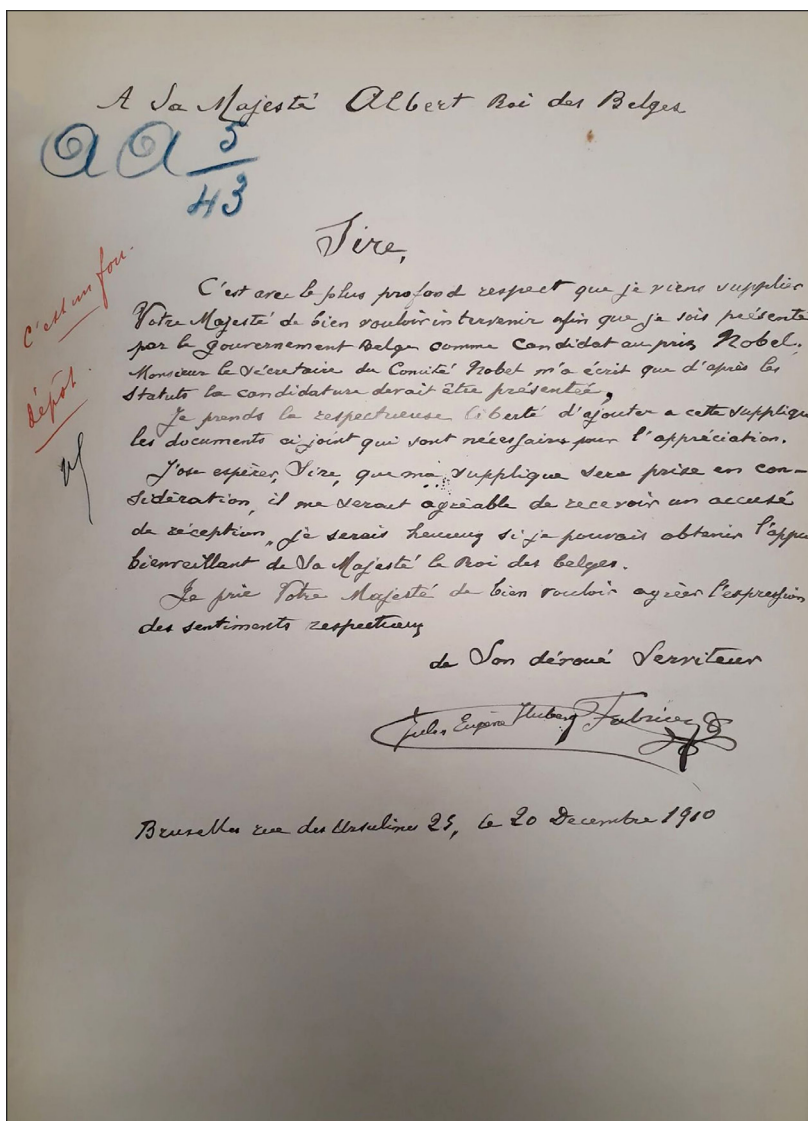 A Sa Majesté Albert Roi des Belges
a a 5
43
Sire,
C'est un fou.
dépôt.
C'est avec le plus profond respect que je viens supplier
Votre Majesté de bien vouloir intervenir afin que je sois présenté
par le gouvernement Belge comme candidat au prix Nobel.
Monsieur le Sécretaire du Comité Nobel m'a écrit que d'après les
statuts la candidature devait être présentée.
Je prends la respectueuse liberté d'ajouter a cette supplique
les documents ci joint qui sont nécessaires pour l'appréciation.
J'ose espérer, Sire, que ma supplique sera prise en con-
sidération, il me serait agréable de recevoir un accusé
de réception, je serais heureux si je pouvais obtenir l'appu
bienveillant de Sa Majesté le Roi des belges.
Je prie Votre Majesté de bien vouloir agréer l'expression
des sentiments respectueux
de Son dévoué Serviteur
Jules Eugène Hubert
Bruxelles rue des Ursulines 25, le 20 Decembre 1910